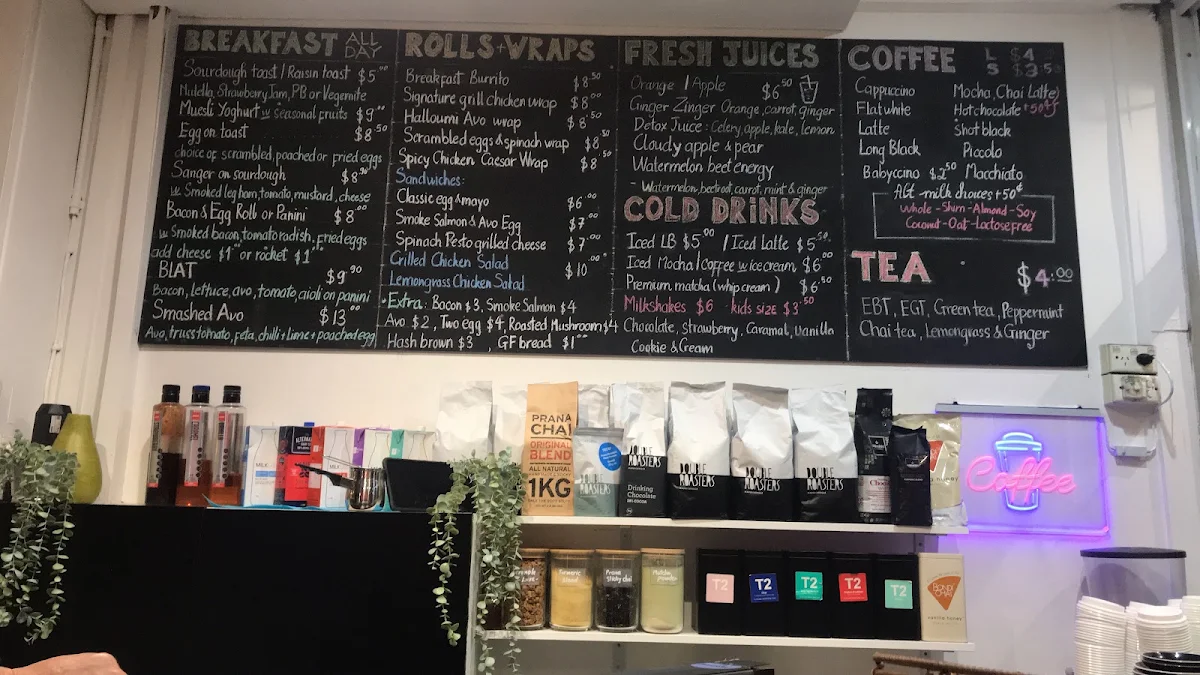 BREAKFAST ALL DAY
Sourdough toast / Raisin toast $5.00
Nutella, Strawberry Jam, PB or Vegemite
Muesli Yoghurt w seasonal fruits $9
Egg on toast $8.50
choice of scrambled, poached or fried eggs
Sanger on sourdough
w Smoked leg ham, tomato, mustard, cheese
Bacon & Egg Roll or Panini $8.00
w Smoked bacon, tomato radish, fried eggs
add cheese $1 or rocket $1
BLAT $9.90
Bacon, lettuce, avo, tomato, aioli on panini
Smashed Avo $13.00
Avo, truss tomato, feta, chilli + lime + poached egg
ROLLS+WRAPS
Breakfast Burrito $8.50
Signature grill chicken wrap $8.00
Halloumi Avo wrap $8.50
Scrambled eggs & spinach wrap $8
Spicy Chicken Caesar Wrap $8.50
Sandwiches:
Classic egg & mayo $6.00
Smoke Salmon & Avo Egg $7.00
Spinach Pesto grilled cheese $7.00
Grilled Chicken Salad $10.00
Lemongrass Chicken Salad
+Extra: Bacon $3, Smoke Salmon $4
Avo $2, Two egg $4, Roasted Mushroom $4
Hash brown $3, GF bread $1
FRESH JUICES
Orange / Apple $6.50
Ginger Zinger Orange, carrot, ginger
Detox Juice: Celery, apple, kale, lemon
Cloudy apple & pear
Watermelon beet energy
- Watermelon, beetroot, carrot, mint & ginger
COLD DRINKS
Iced LB $5.00 / Iced Latte $5.50
Iced Mocha / Coffee w ice cream, $6.00
Premium matcha (whip cream) $6.50
Milkshakes $6 kids size $3.50
Chocolate, strawberry, Caramel, Vanilla
Cookie & Cream
COFFEE L $4
S $3.50
Cappuccino Mocha, Chai Latte
Flat white Hot chocolate +50¢
Latte Short black
Long Black Piccolo
Babyccino $2.50 Macchiato
Alt milk choices +50¢
Whole - Skim - Almond - Soy
Coconut - Oat - Lactose free
TEA $4.00
EBT, EGT, Green tea, Peppermint
Chai tea, Lemongrass & Ginger
PRANA
CHAI
ORIGINAL
BLEND
ALL NATURAL
1KG
MILK
MILK
DOUBLE
ROASTERS
Drinking
Chocolate
DOUBLE
ROASTERS
DOUBLE
ROASTERS
DOUBLE
ROASTERS
Coffee
Turmeric
blend
Prana
Sticky chai
Matcha
powder
T2
T2
T2
T2
T2
BONDI
CHAI